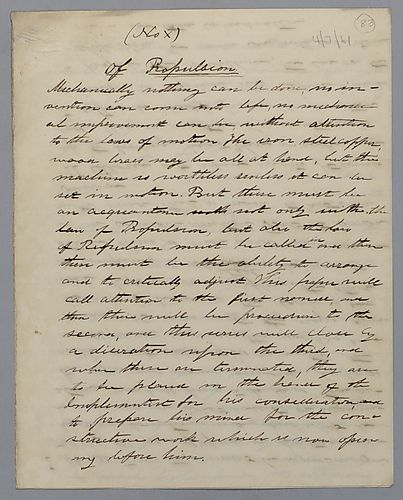 (No X)
83
4/7/61
Of Propulsion
Mechanically nothing can be done, no in-
vention can come into life, no mechanic-
al improvement can be, without attention
to the laws of motion. The iron steel copper,
wood brass may be all at hand, but the
machine is worthless unless it can be
set in motion. But there must be
an acquaintance not only with the
law of Propulsion, but also the law
of Repulsion must be called in and then
there must be the ability to arrange
and to critically adjust. This paper will
call attention to the first named and
then there will be procession to the
second, and this series will close by
a discussion upon the third, and
when these are terminated, they are
to be placed in the hands of the
Implementist for his consideration, and
to prepare his mind for the con-
structive work which is now open-
ing before him.